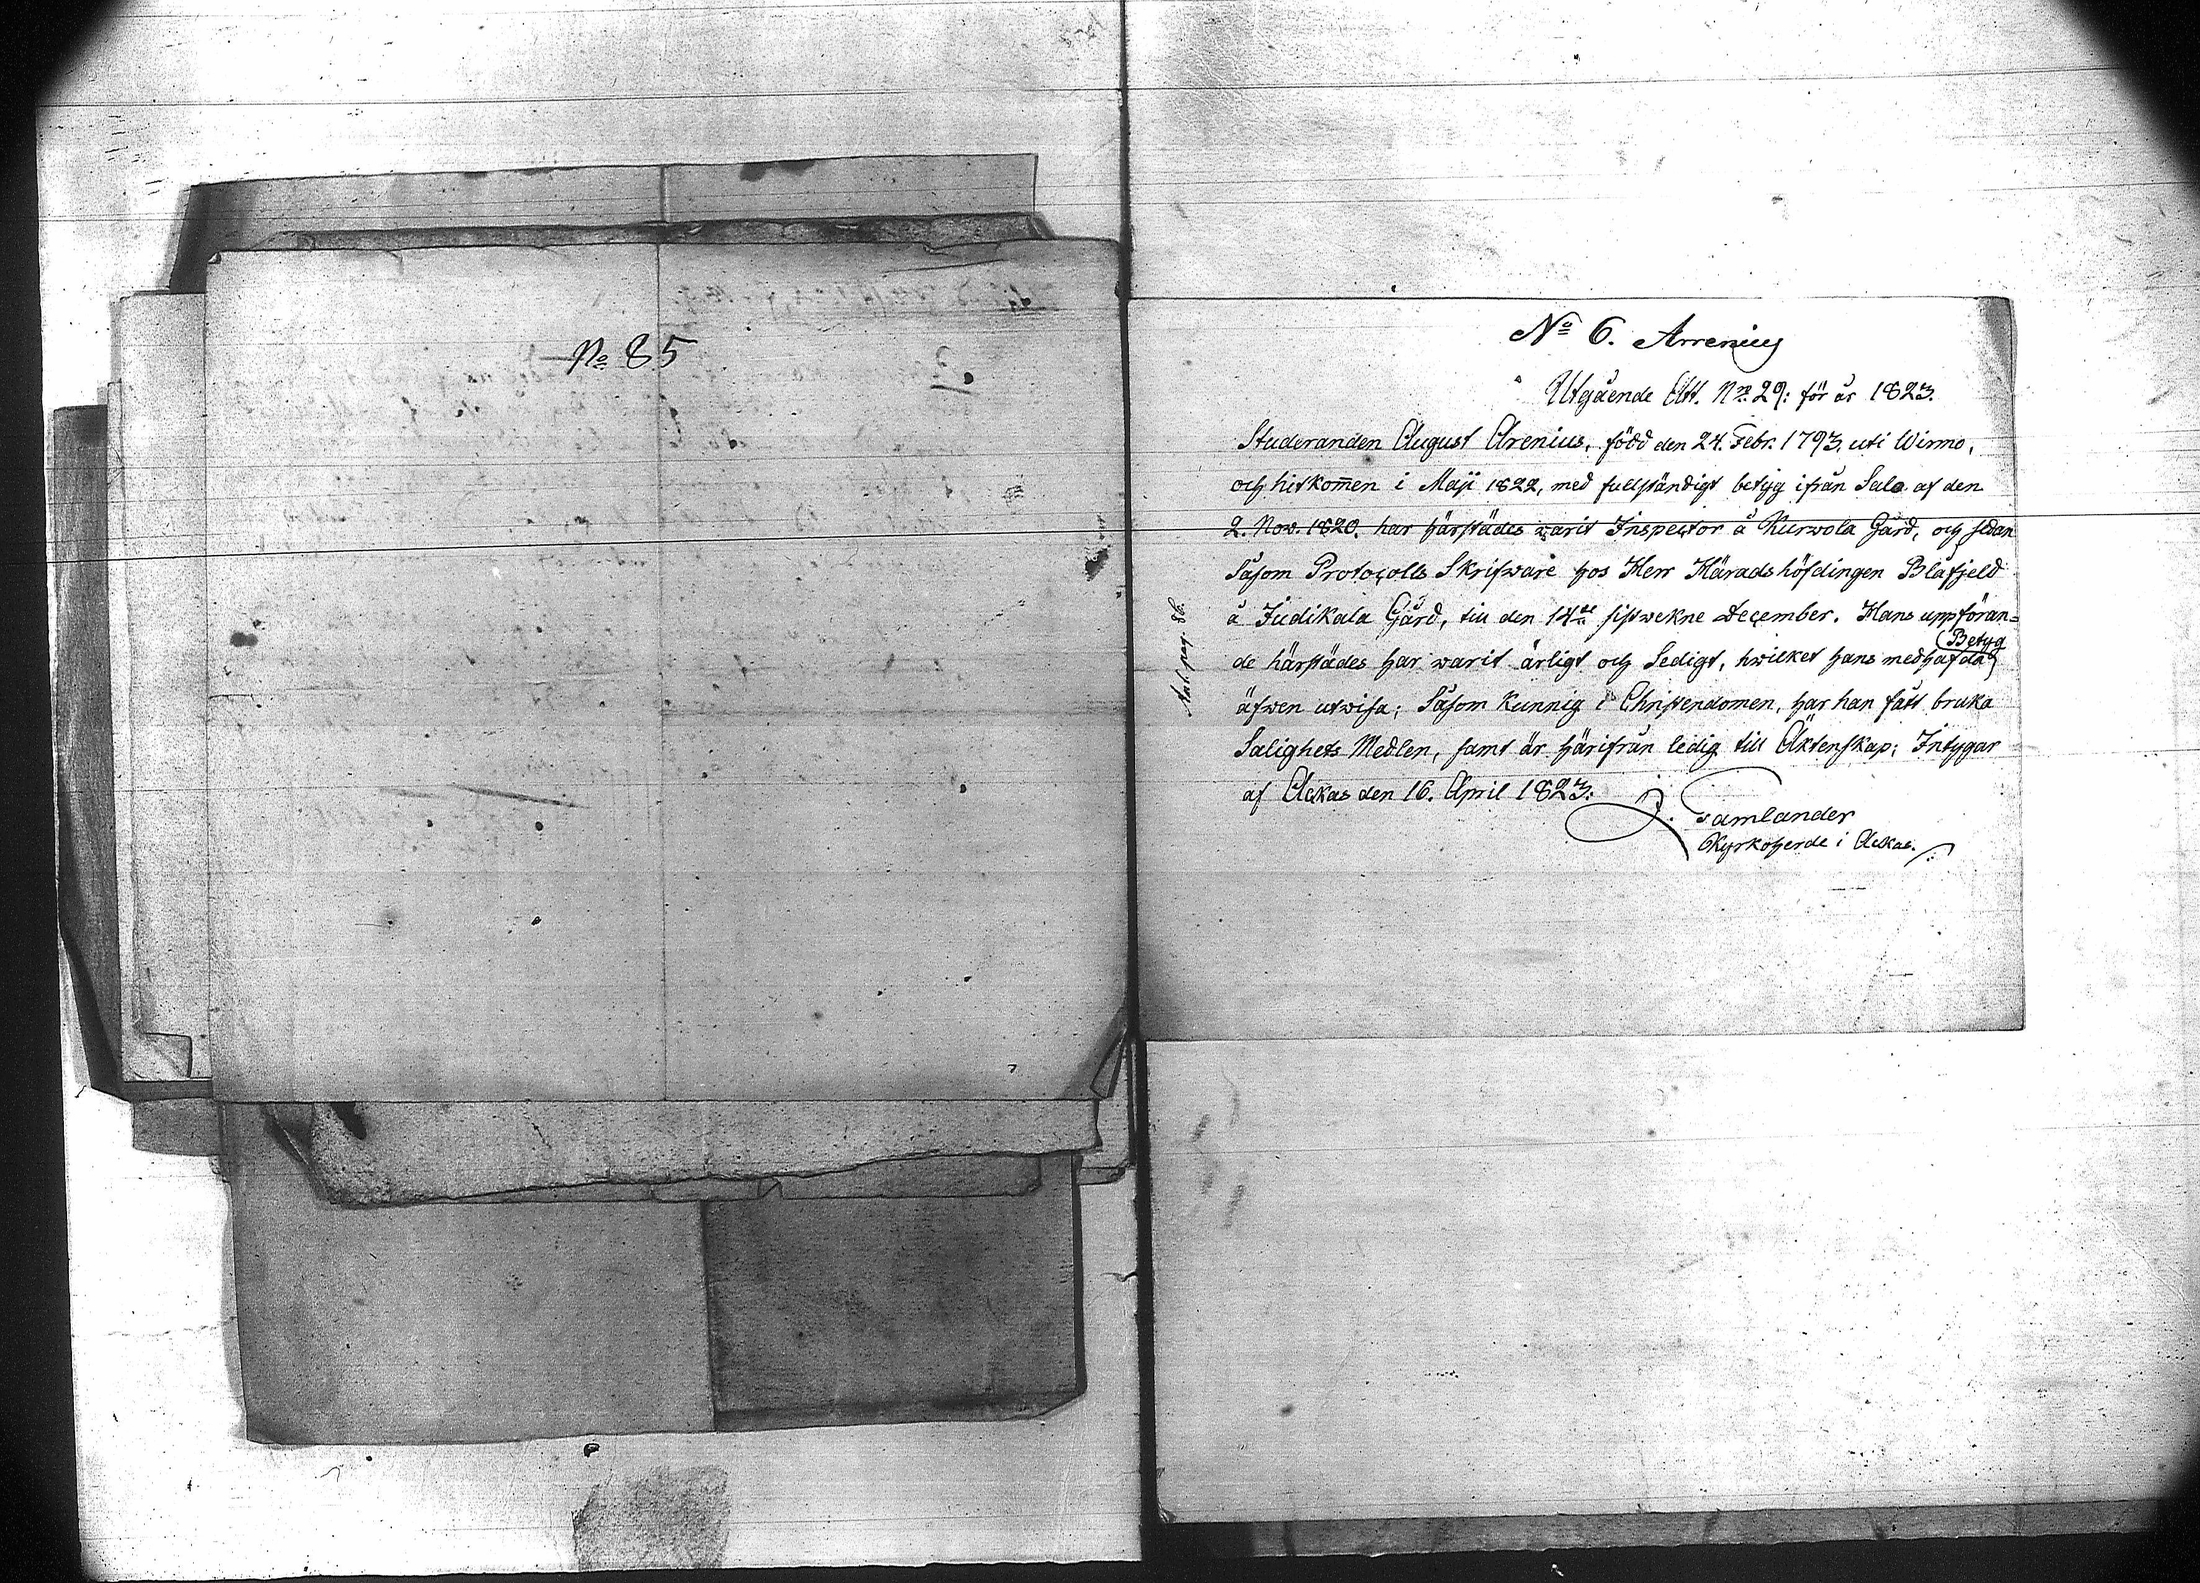 No 85
No 6. Arrenius
Utgående Att. No 29: för år 1823.
Studeranden August Arenius, född den 24. Febr. 1793. uti Wirmo,
och hitkom̅en i Maji 1822, med fullständigt betyg ifrån Salo af den
2. Nov. 1820. har härstädes warit Inspector å Kurwola Gård, och sedan
Såsom Protocolls Skrifware hos Herr Häradshöfdingen Blåfjeld
å Judikala Gård, till den 14de sistwekne December. Hans uppföran=
de härstädes har warit ärligt och Sedigt, hwilket hans medhafda Betyg
äfwen utwisa; Såsom Kunnig i Christendomen, har han fått bruka
Salighets Medlen, samt är härifrån ledig till Äktenskap; Intygar
af Ackas den 16. April 1823:
J. Gamlander
Kyrkoherde i Ackas.
pag. 86.